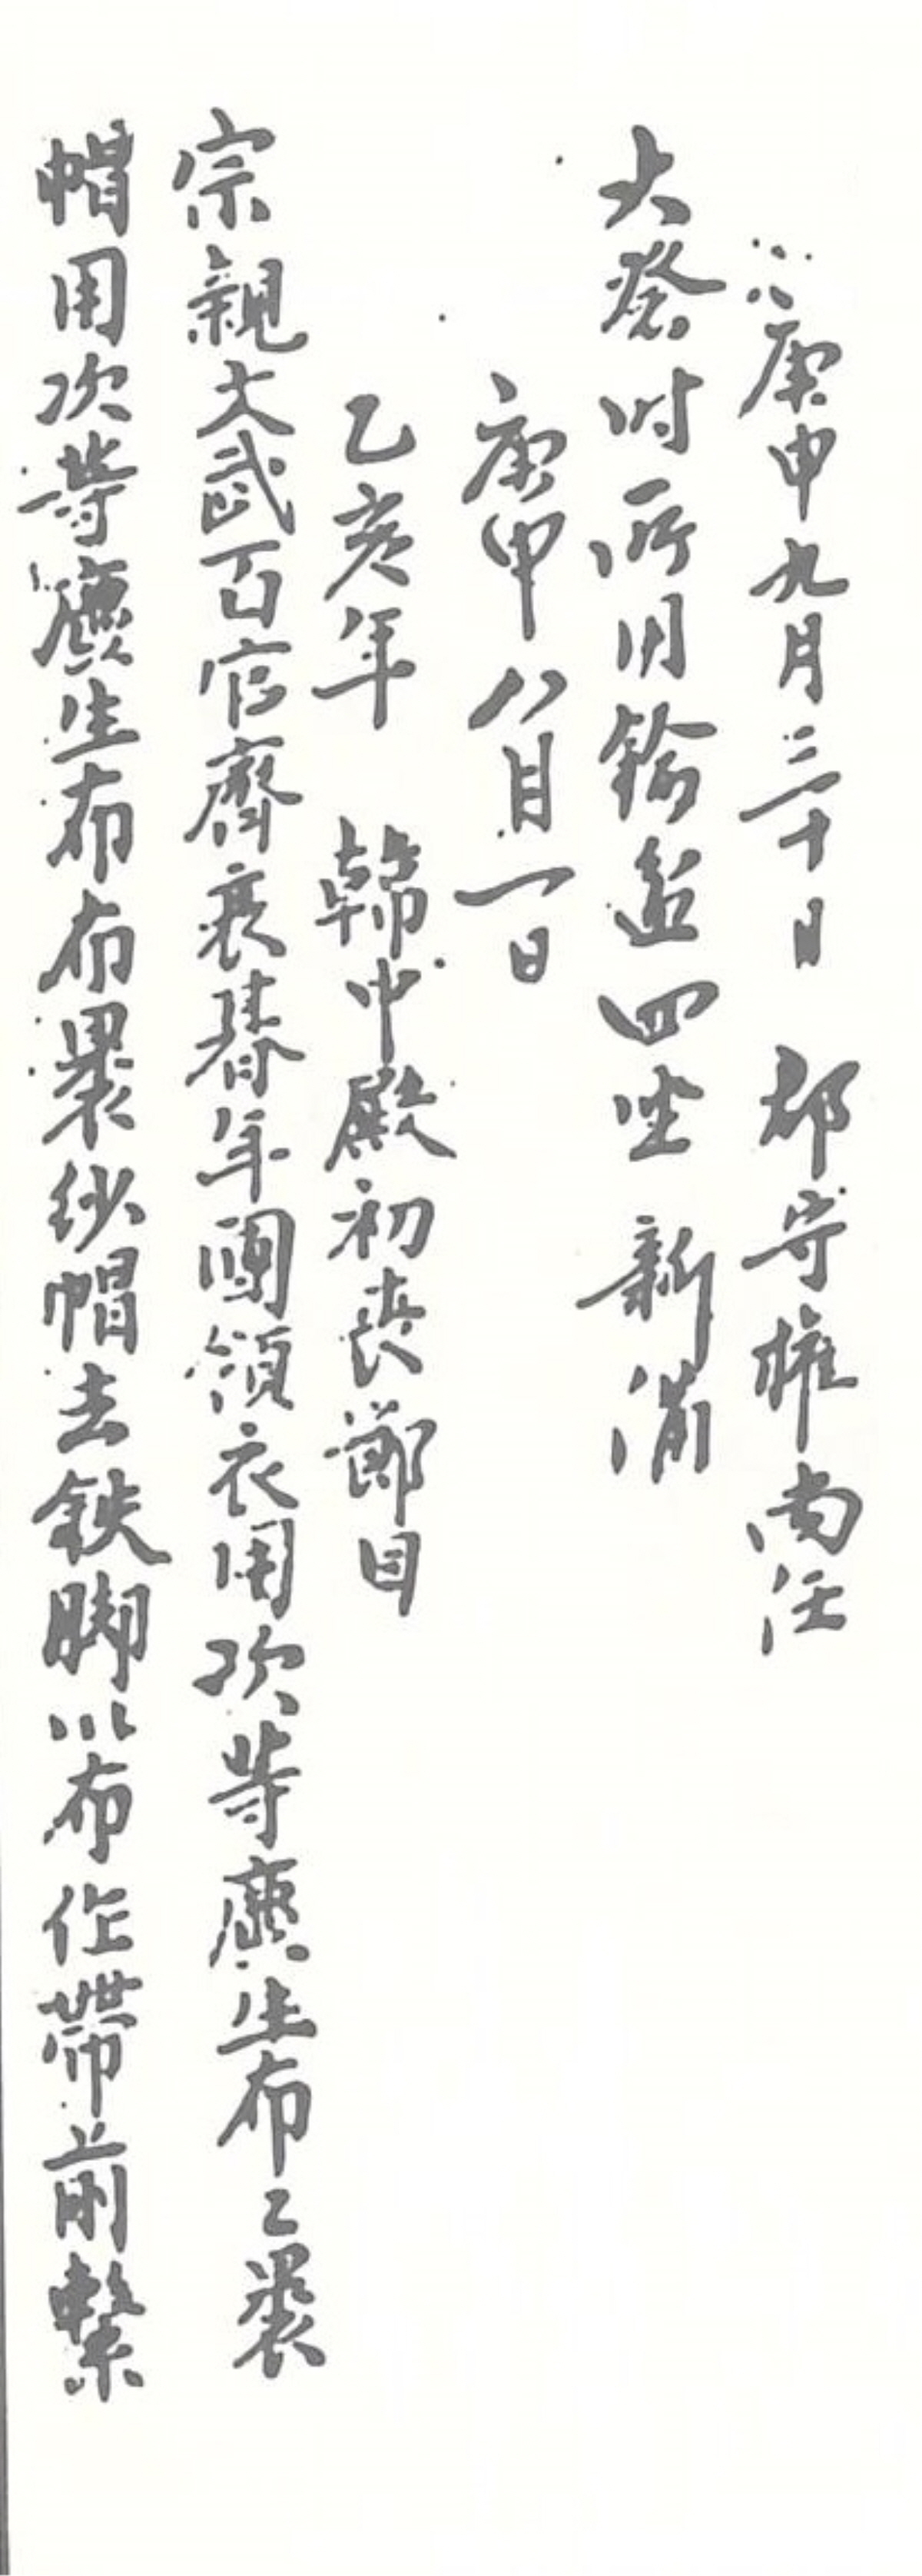 庚申九月三十日 郡守權尚任
大祭時所用鍮簠四坐 新備
庚申八月一日
乙亥年 韓中殿初喪節目
宗親文武百官齊衰朞年團領衣用次等麁生布〻裹
帽用次等麁生布布裹紗帽去鉄脚以布作帶前繫